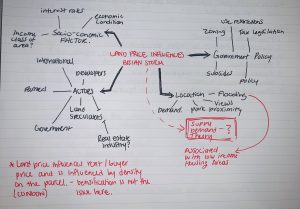 interest rates
economic
Condition
Income
class of
area?
Socio-economic
FACTOR.
LAND PRICE INFLUENCES
use restrictions
Zoning
Tax legislation
Government Policy
subsides
policy
International
Developers
ACTORS
Land
speculators
Government
Real estate
industry?
Location
Flooding
Demand
Views
more proximity
Supply
demand - ?
Theory
Associated
with low income
Housing areas
* Land price influences rent / buyer
price and is influenced by density
on the parcel. - densification is not the
(CONDOS) issue here.